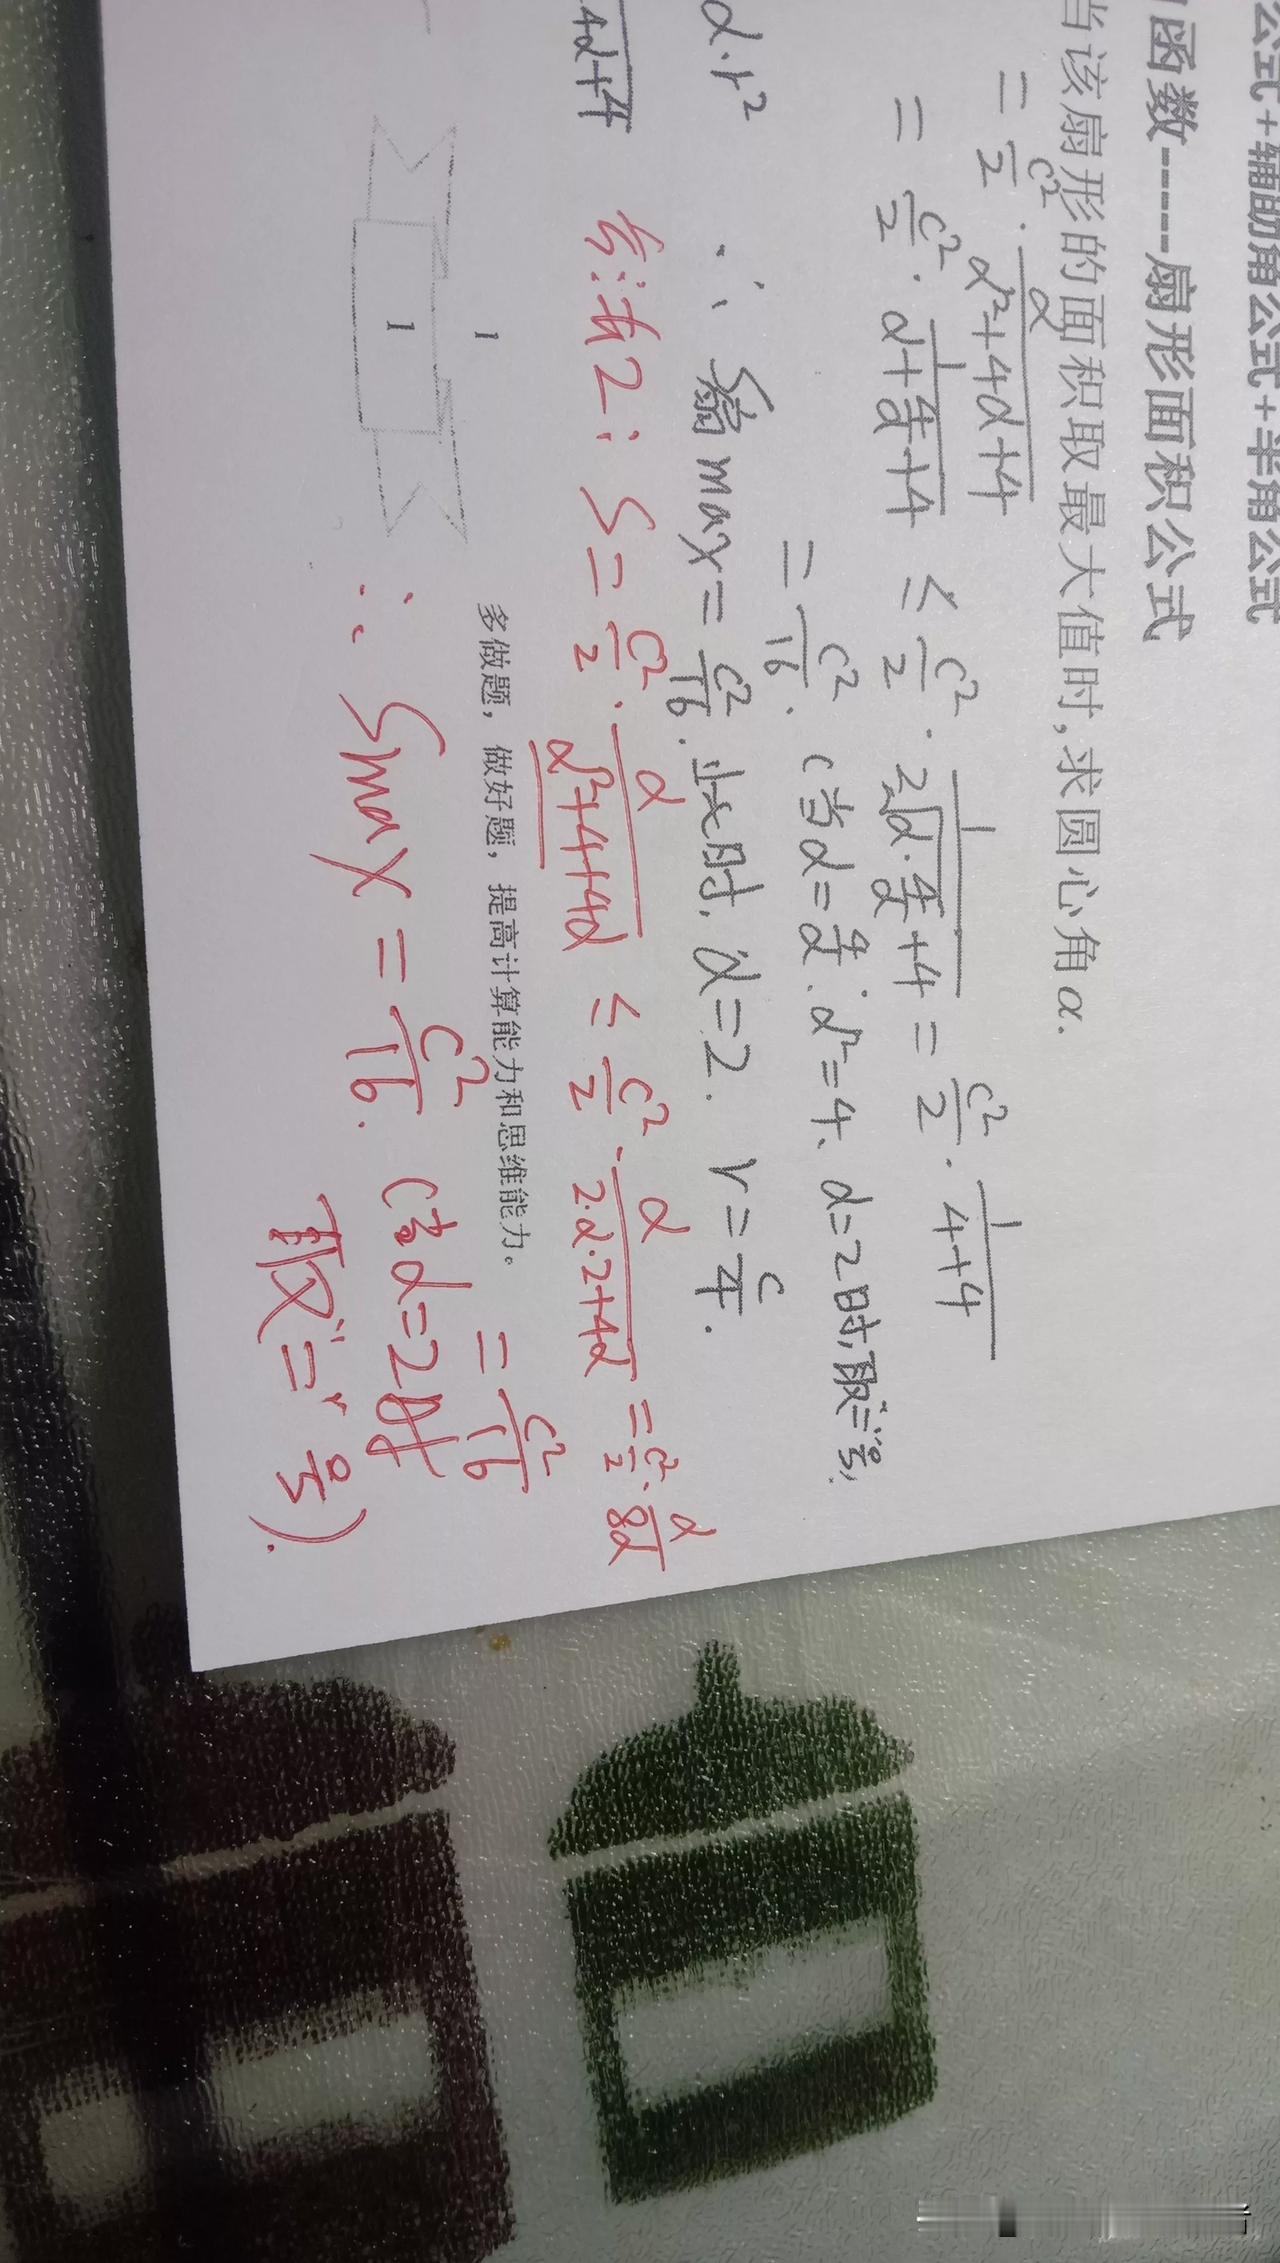 公式+辅助角公式+半角公式
函数-----扇形面积公式
当该扇形的面积取最大值时,求圆心角α.
= c²/2 · α/(α²+4α+4)
= c²/2 · 1/(α+4/α+4) ≤ c²/2 · 1/(2√(α·4/α)+4) = c²/2 · 1/(4+4)
= c²/16. (当α=4/α. α²=4、α=2时,取"="号,
α·r²
∴ S扇max = c²/16. 此时, α=2. r=c/4.
4α+4
方法2: S= c²/2 · α/(α²+4+4α) ≤ c²/2 · α/(2·α·2+4α) = c²/2 · α/8α
= c²/16
多做题，做好题，提高计算能力和思维能力。
1
1
∴ Smax = c²/16. (当α=2时
取"="号).